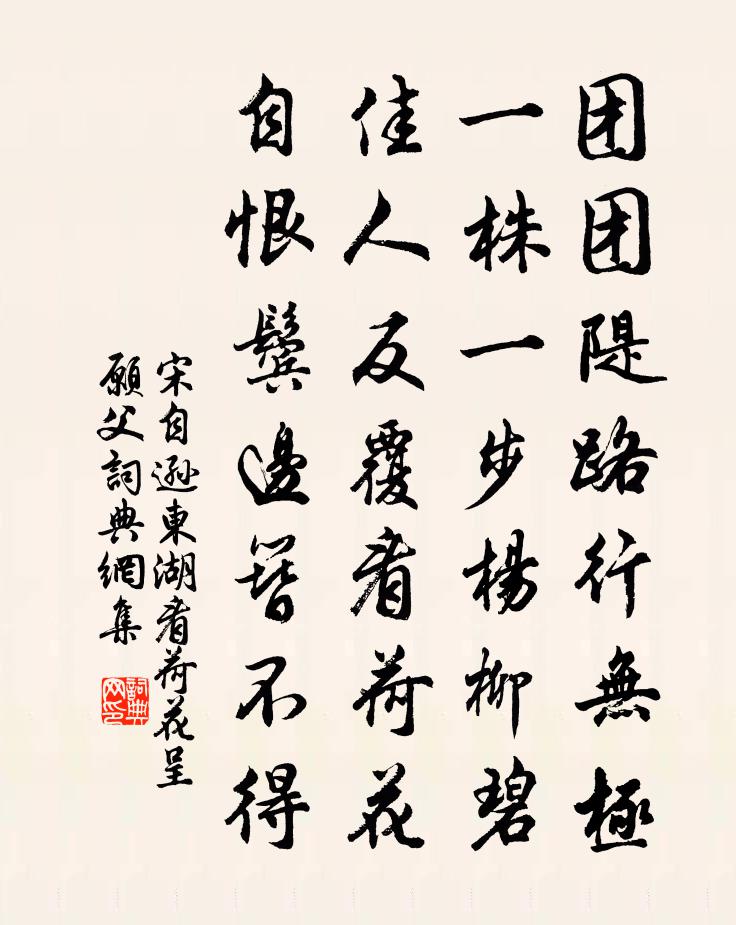 团团隄路行無極
一株一步楊柳碧
佳人反覆看荷花
自恨鬓邊簪不得
宋自遜東湖看荷花呈
願父詞典網集
詞典網印